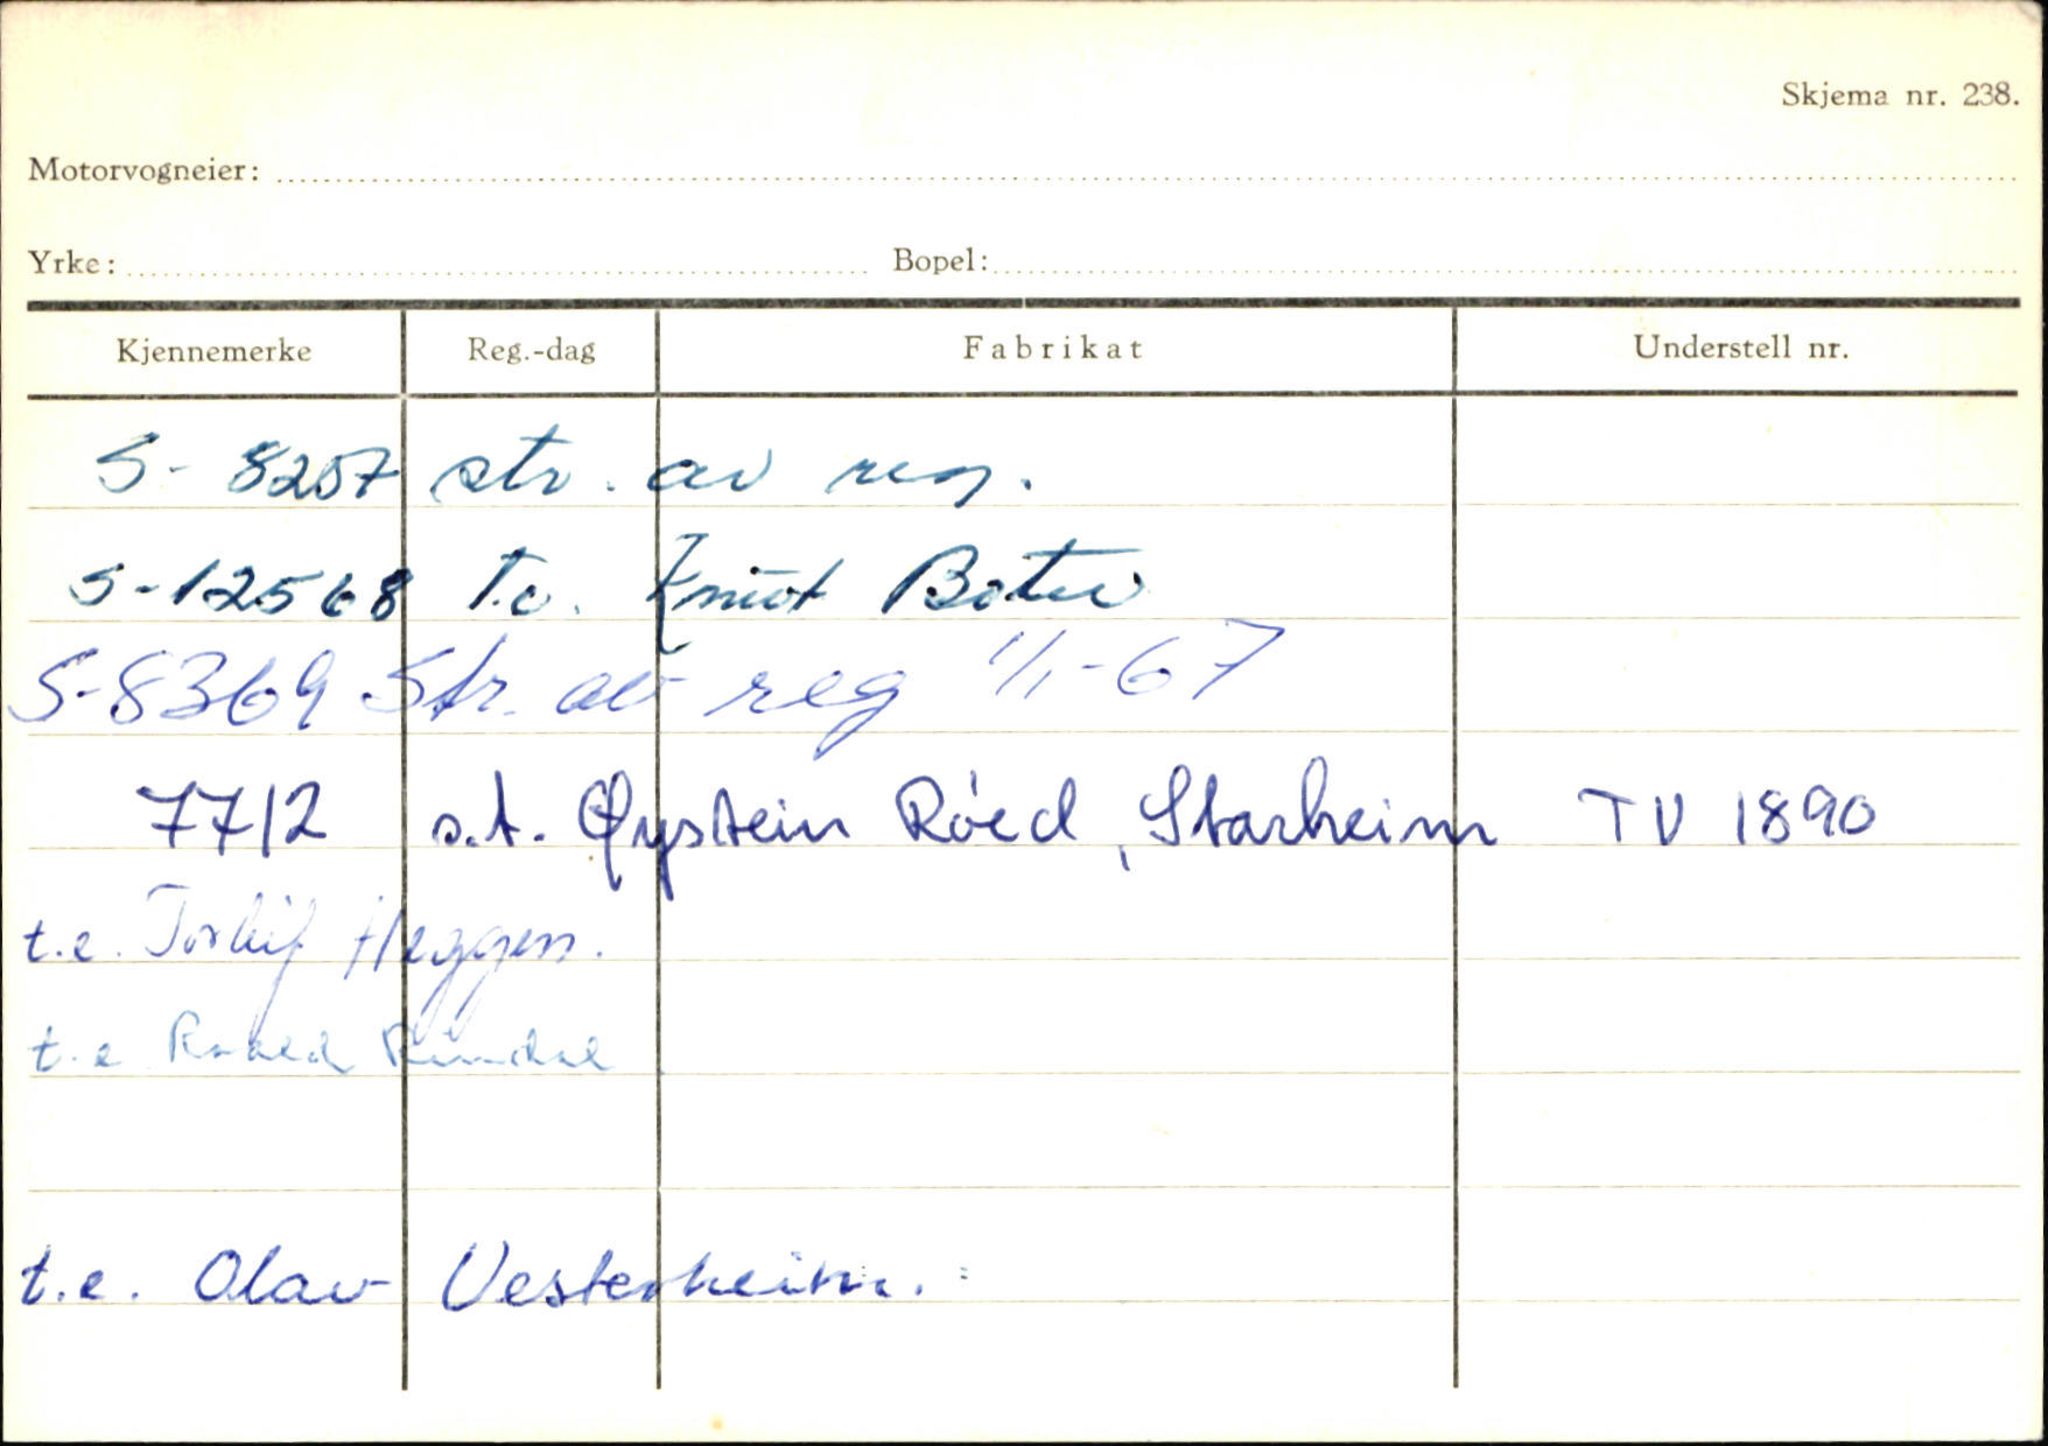 Skjema nr. 238.
Motorvogneier:
Yrke: Bopel:
Kjennemerke Reg.-dag Fabrikat Understell nr.
S- 8257 str. av reg.
S-12568 T.e. Knut
S-8369 Str. av reg 1/1-67
7712 s.t. Øystein Röed, Starheim TV 1890
t.e. Torleif Heggen.
t.e
t.e. Olav Vesterheim.